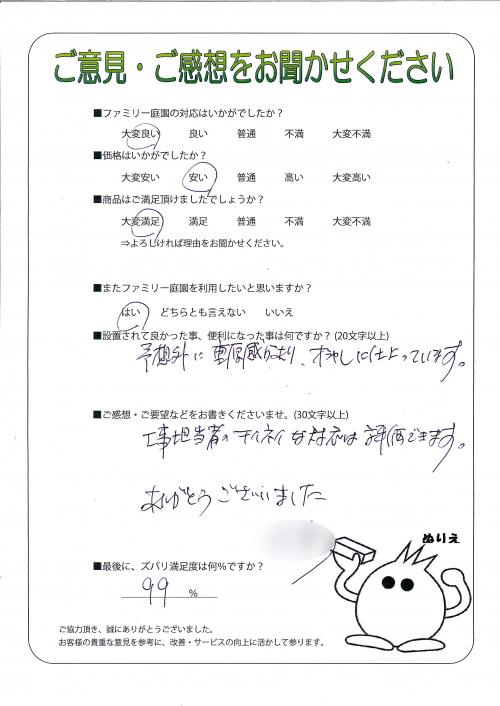 ご意見・ご感想をお聞かせください
■ファミリー庭園の対応はいかがでしたか？
大変良い 良い 普通 不満 大変不満
■価格はいかがでしたか？
大変安い 安い 普通 高い 大変高い
■商品はご満足頂けましたでしょうか？
大変満足 満足 普通 不満 大変不満
⇒よろしければ理由をお聞かせください。
■またファミリー庭園を利用したいと思いますか？
はい どちらとも言えない いいえ
■設置されて良かった事、便利になった事は何ですか？(20文字以上)
予想外に重厚感があり、オシャレに仕上っています。
■ご感想・ご要望などをお書きくださいませ。(30文字以上)
工事担当者のテイネイな対応は評価できます。
ありがとうございました
ぬりえ
■最後に、ズバリ満足度は何％ですか？
99 %
ご協力頂き、誠にありがとうございました。
お客様の貴重な意見を参考に、改善・サービスの向上に活かして参ります。